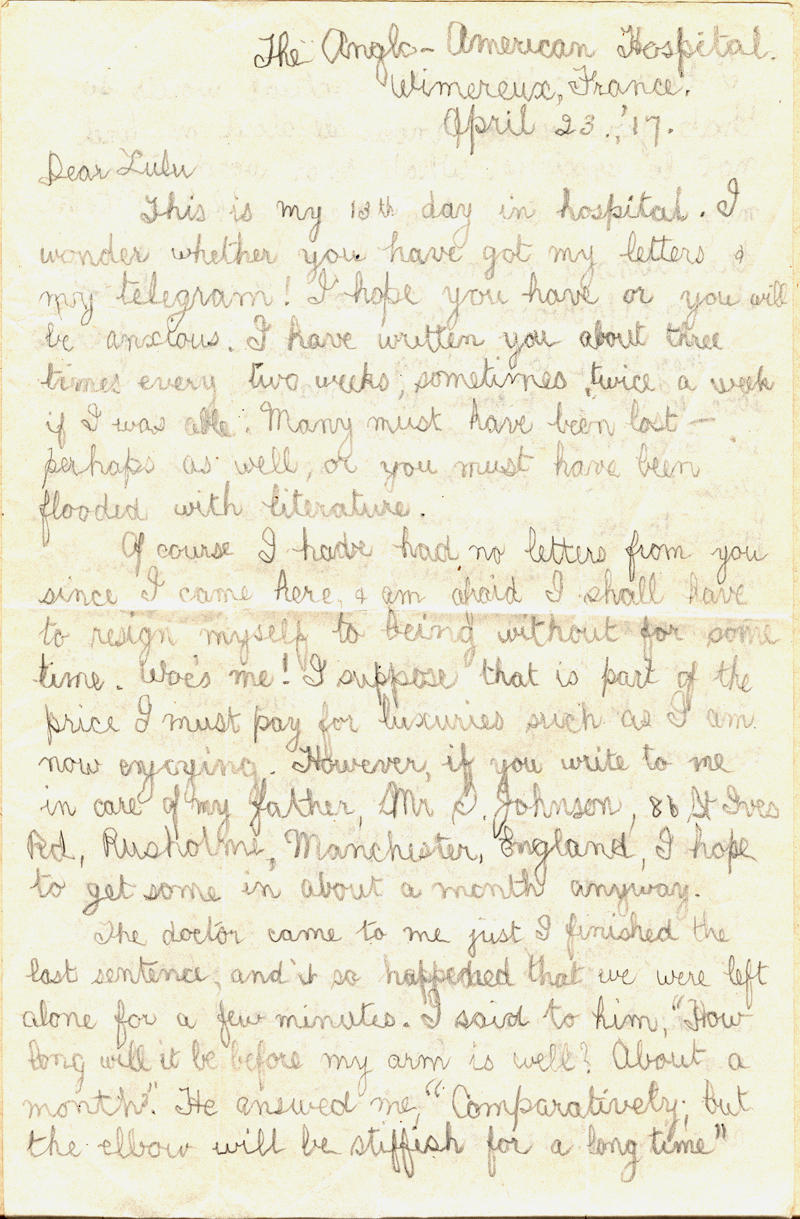 The Anglo-American Hospital.
Wimereux, France.
April 23., '17.
Dear Lulu
This is my 13th day in hospital. I
wonder whether you have got my letters &
my telegram! I hope you have or you will
be anxious. I have written you about three
times every two weeks, sometimes twice a week
if I was able. Many must have been lost —
perhaps as well, or you must have been
flooded with literature.
Of course I have had no letters from you
since I came here, & am afraid I shall have
to resign myself to being without for some
time. Woe's me! I suppose that is part of the
price I must pay for luxuries such as I am
now enjoying. However, if you write to me
in care of my father, Mr Johnson, 86 St Ives
Rd, Rusholme, Manchester, England, I hope
to get some in about a month anyway.
The doctor came to me just I finished the
last sentence, and it so happened that we were left
alone for a few minutes. I said to him, "How
long will it be before my arm is well? About a
month?". He answed me, "Comparatively, but
the elbow will be stiffish for a long time"